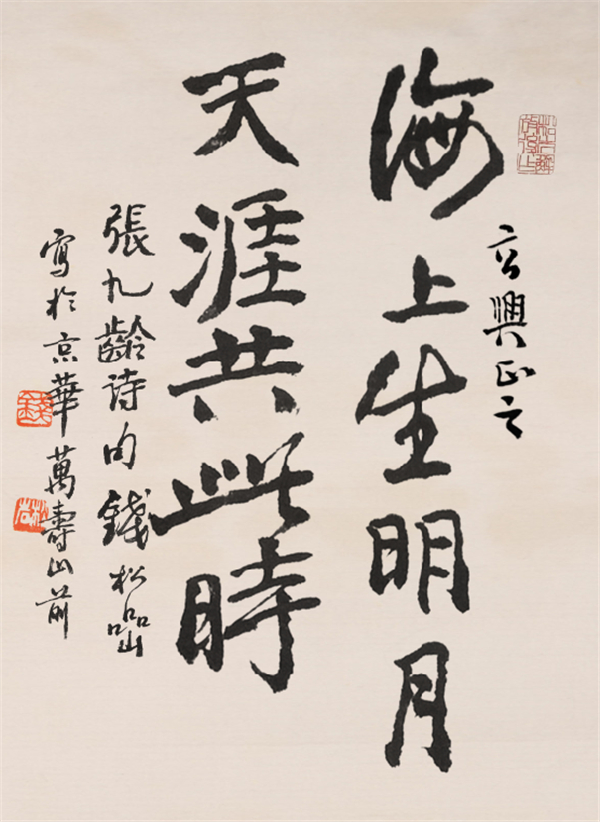 興正之
海上生明月
天涯共此時
張九齡诗句錢松喦
寫於京華萬壽山前
錢
松喦